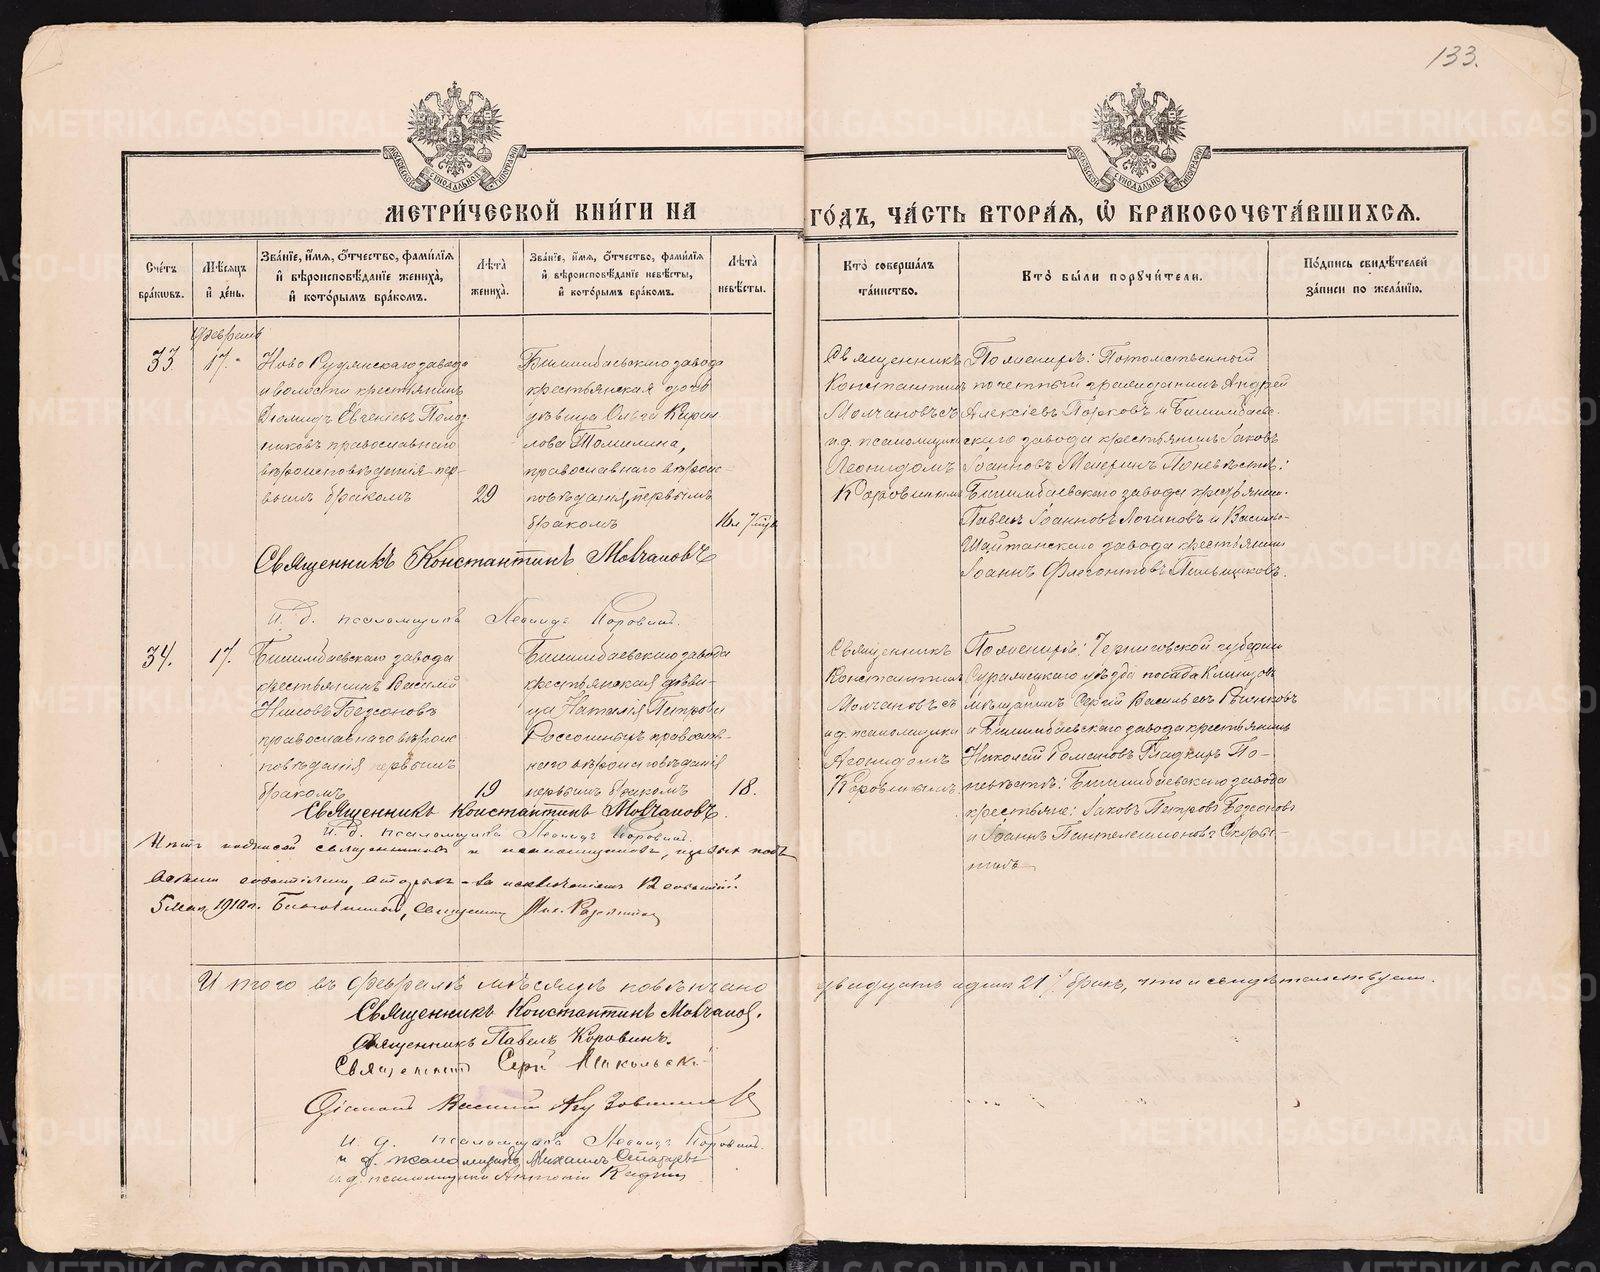 133.
МЕТРИ́ЧЕСКОЙ КНИ́ГИ НА ГО́ДЪ, ЧА́СТЬ ВТОРА́Я, Ѡ БРАКОСОЧЕТА́ВШИХСЯ.
Сче́тъ бра́кѡвъ.
Мѣ́сяцъ и҆ де́нь.
Зва́нїе, и҆́мя, ѻ҆́тчество, фами́лїя и҆ вѣроисповѣ́данїе жениха̀, и҆ кото́рымъ бра́комъ.
Лѣта̀ жениха̀.
Зва́нїе, и҆́мя, ѻ҆́тчество, фами́лїя и҆ вѣроисповѣ́данїе невѣ́сты, и҆ кото́рымъ бра́комъ.
Лѣта̀ невѣ́сты.
Кто̀ соверша́лъ та́инство.
Кто̀ бы́ли порꙋчи́тели.
По́дпись свидѣ́телей за́писи по жела́нїю.
Февраль
33.
17.
Ново Рудянскаго завода
и волости крестьянинъ
Диомидъ Евгеніевъ Полоз
никовъ православнаго
вѣроисповѣданія пер-
вымъ бракомъ
29
Билимбаевскаго завода
крестьянская дочь
дѣвица Ольга Кирил
лова Томилина,
православнаго вѣроис-
повѣданія, первымъ
бракомъ
16 л 7
Священникъ
Константинъ
Молчановъ съ
и.д. псаломщика
Леонидомъ
Коровинымъ
По женихѣ: Потомственный
почетный гражданинъ Андрей
Алексіевъ Пѣрковъ и Билимбаев-
скаго завода крестьянинъ Іаковъ
Іоанновъ Мичеринъ По невѣстѣ:
Билимбаевскаго завода крестьянин.
Павелъ Іоанновъ Логиновъ и Василь-
Шайтанскаго завода крестьянинъ
Іоаннъ Флегонтовъ Пильщиковъ.
Священникъ Константинъ Молчановъ
И. д. псаломщика Леонидъ Коровинъ.
34.
17.
Билимбаевскаго завода
крестьянинъ Василій
православнаго вѣроис
повѣданія первымъ
бракомъ
19
Билимбаевскаго завода
крестьянская дѣви-
ца Наталія Петрова
Россомныхъ православ-
наго вѣроисповѣданія
первымъ бракомъ
18.
Священникъ
Константинъ
Молчановъ съ
и д. псаломщика
Леонидомъ
Коровинымъ
По женихѣ: Черниговской губерніи
Суражскаго уѣзда посада Клинцовъ
мѣщанинъ Сергій Васильевъ
и Билимбаевскаго завода крестьянинъ
Николай Романовъ Гладкихъ По-
невѣстѣ: Билимбаевскаго завода
крестьяне: Іаковъ Петровъ
и Іоаннъ Пантелеимоновъ
Священникъ Константинъ Молчановъ.
И. д. псаломщика Леонидъ Коровинъ.
Нѣтъ подписей священниковъ и псаломщиковъ, первых подъ
всѣми событіями, вторых - за исключеніемъ 12 событій.
5 мая 1910 г. Благочинный, священникъ
Итого въ февралѣ мѣсяцѣ повѣнчано двадцать одинъ 21 бракъ, что и свидѣтельствуемъ.
Священникъ Константинъ Молчановъ.
Священникъ Павелъ Коровинъ.
Священникъ Сергій Никольскій
Діаконъ Василій
И. д. псаломщика Леонидъ Коровинъ.
и. д. псаломщика Михаилъ
и.д. псаломщика Антоній